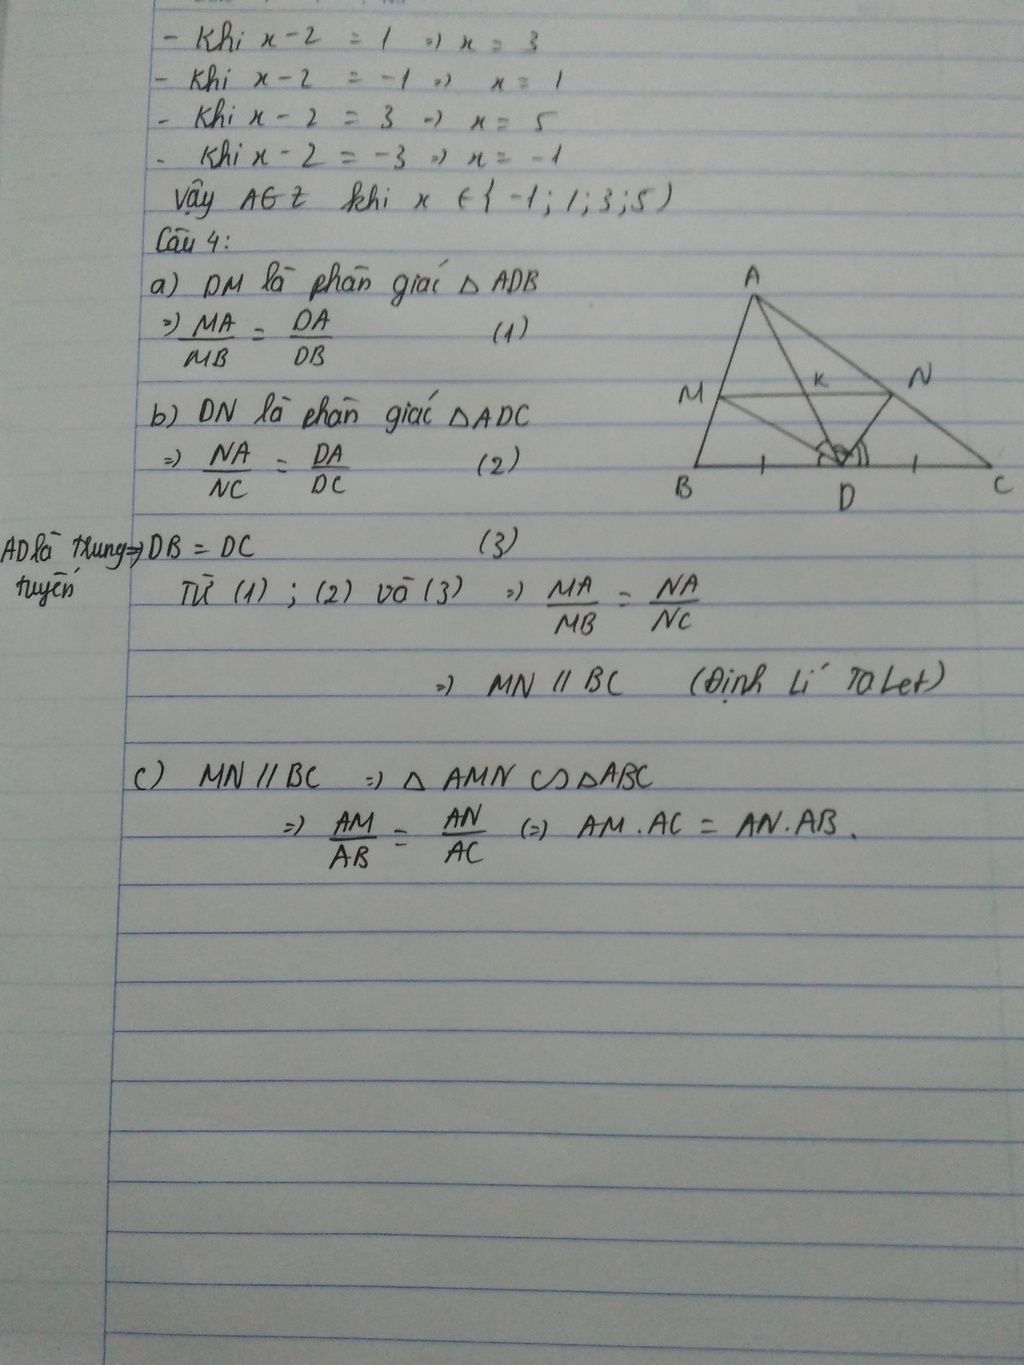 - Khi x-2 = 1 => x = 3
- Khi x-2 = -1 => x = 1
- Khi x-2 = 3 => x = 5
- Khi x-2 = -3 => x = -1
Vậy A∈Z khi x ∈ { -1; 1; 3; 5 )
Câu 4:
a) DM là phân giác △ ADB
=> MA/MB = DA/DB (1)
b) DN là phân giác △ADC
=> NA/NC = DA/DC (2)
AD là trung tuyến => DB = DC (3)
Từ (1) ; (2) và (3) => MA/MB = NA/NC
=> MN // BC (Định lí Ta Let)
c) MN // BC => △ AMN ∽ △ABC
=> AM/AB = AN/AC (=) AM . AC = AN . AB .
A
M K N
B D C